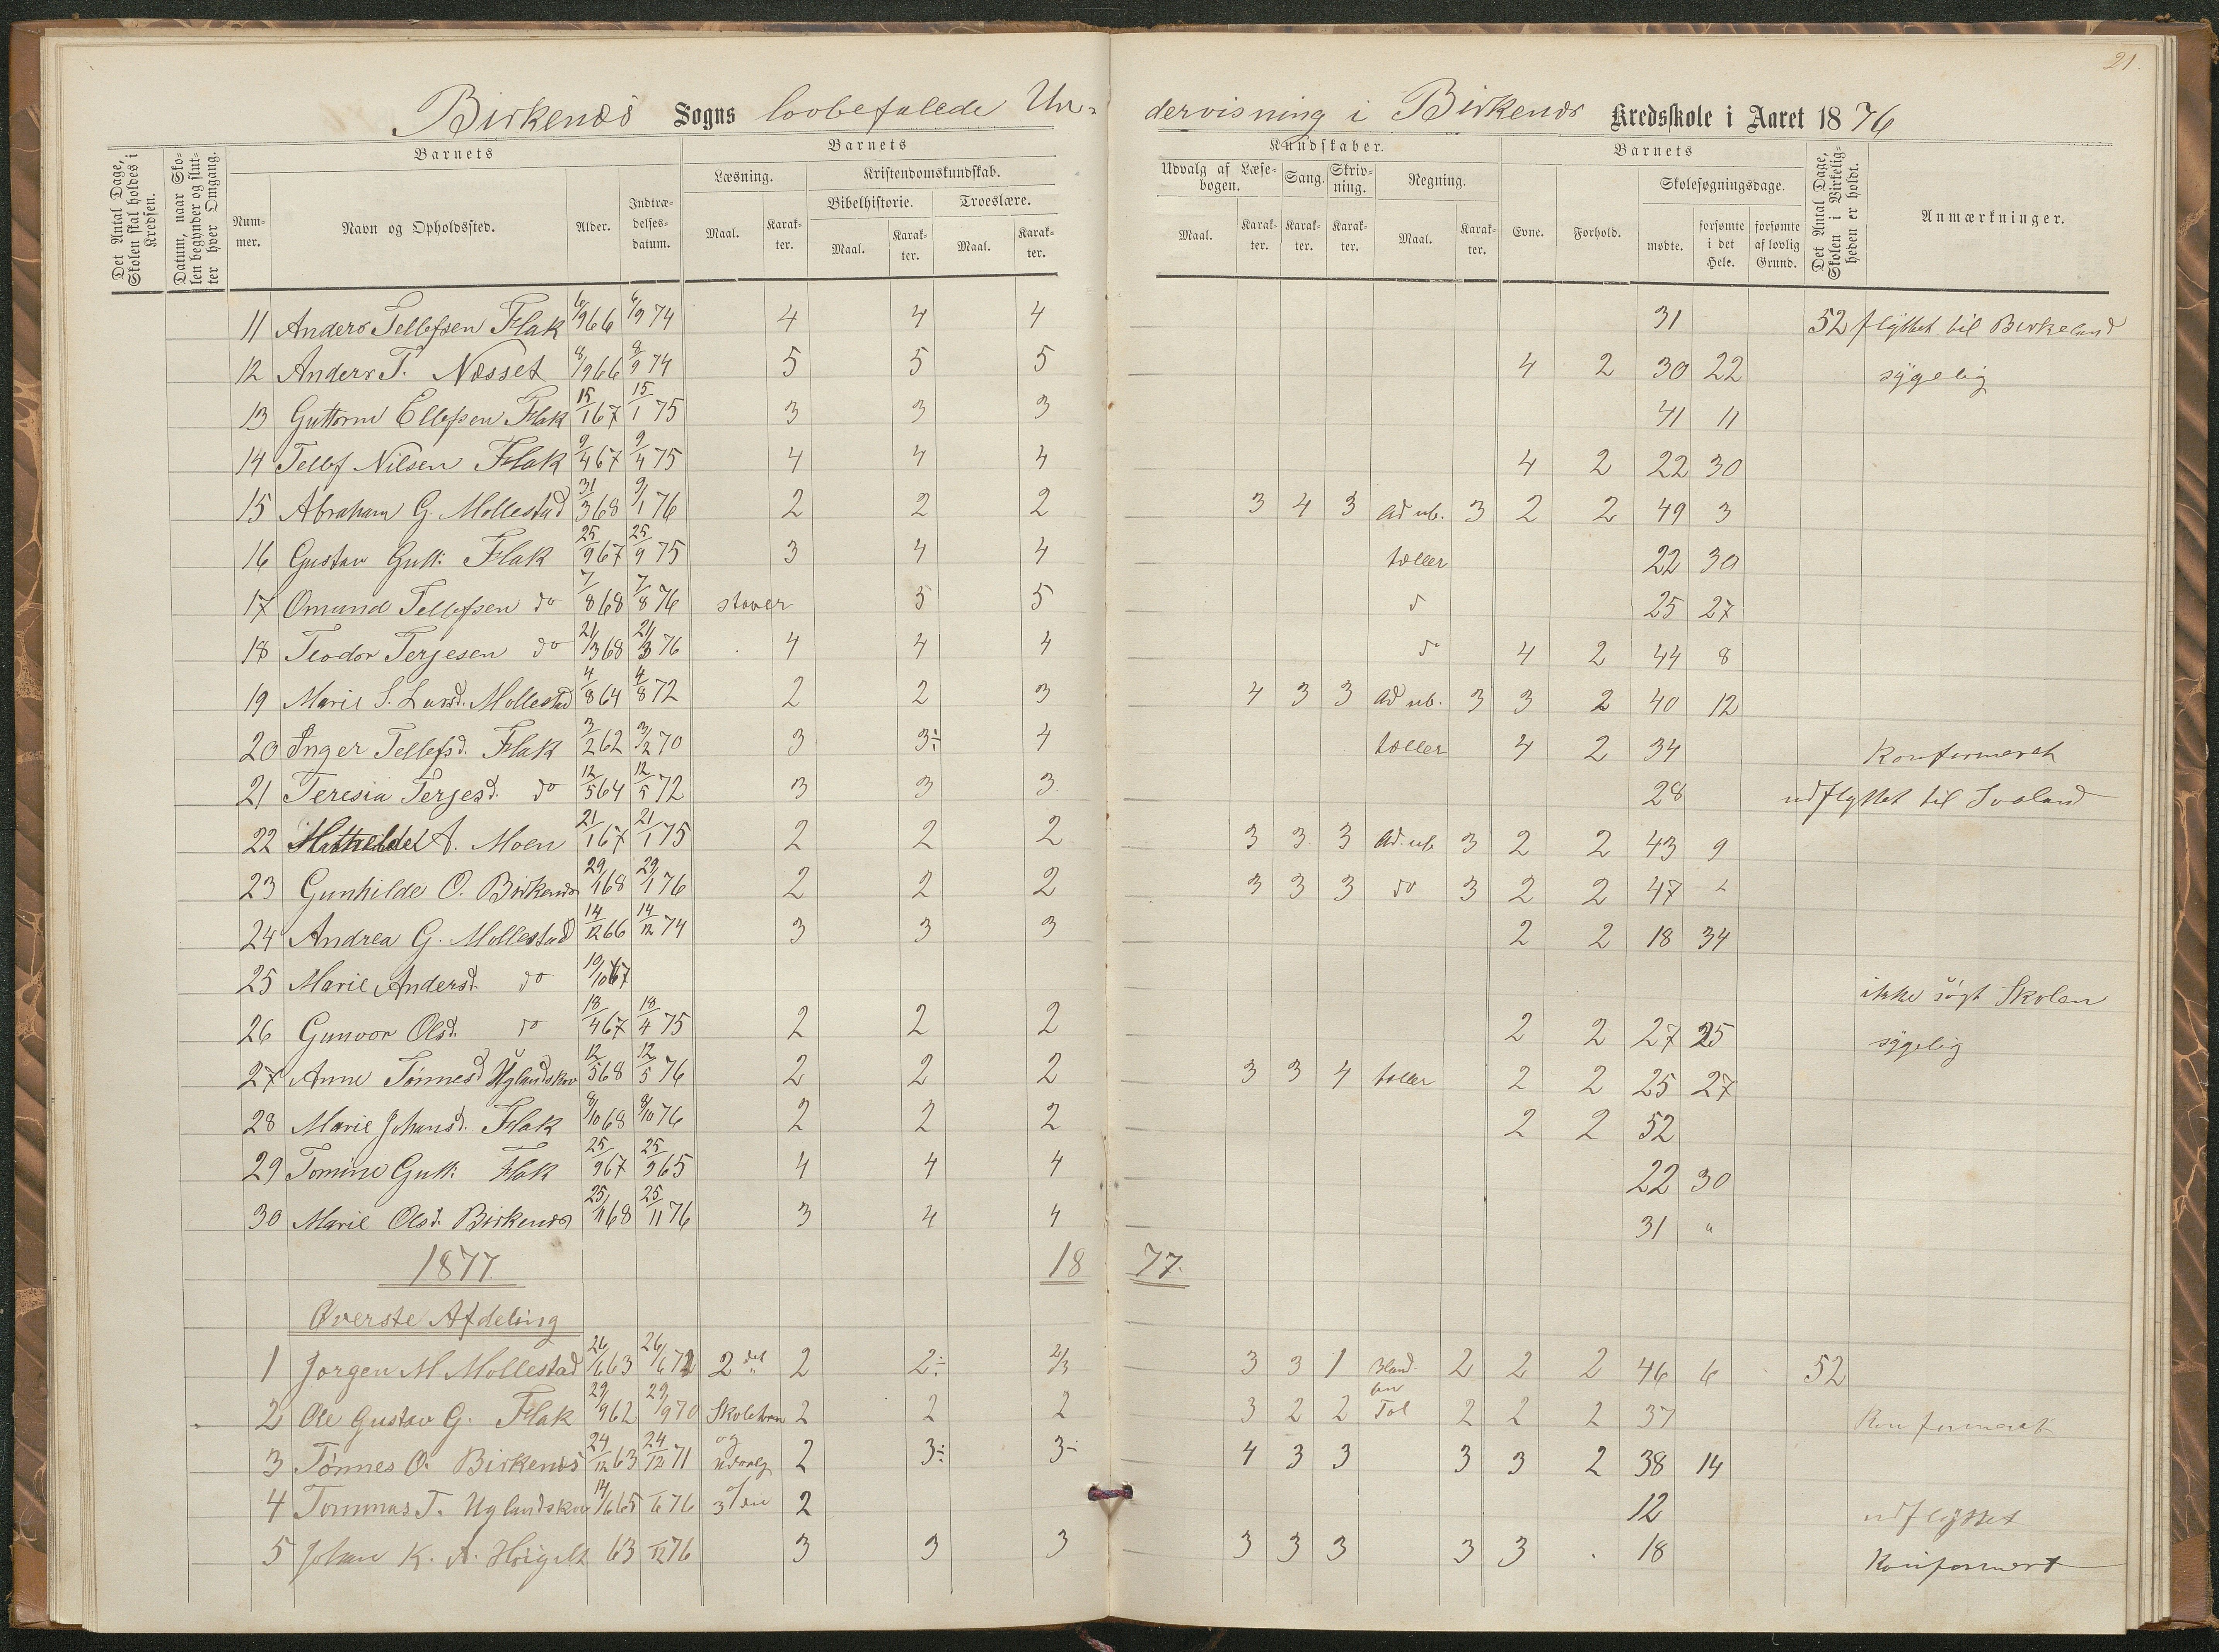 21.
Birkenæs Sogns lovbefalede Un- dervisning i Birkenæs Kredsskole i Aaret 1876
Det Antal Dage, Skolen skal holdes i Kredsen.
Datum, naar Skolen begynder og slutter hver Omgang.
Barnets
Nummer.
Navn og Opholdssted.
Alder.
Indtrædelsesdatum.
Barnets Kundskaber.
Læsning.
Maal. Karakter.
Kristendomskundskab.
Bibelhistorie. Troeslære.
Maal. Karakter. Maal. Karakter.
Udvalg af Læsebogen. Sang. Skrivning. Regning.
Maal. Karakter. Karakter. Karakter. Maal. Karakter.
Barnets
Evne. Forhold.
Skolesøgningsdage.
mødte. forsømte i det Hele. forsømte af lovlig Grund.
Det Antal Dage, Skolen i Virkeligheden er holdt.
Anmærkninger.
11 Anders Tellefsen Flak 6/9 66 6/9 74 4 4 4 31 52 flyttet til Birkeland
12 Anders T. Næsset 8/9 66 8/9 74 5 5 5 4 2 30 22 sygelig
13 Guttorm Ellefsen Flak 15/1 67 15/1 75 3 3 3 41 11
14 Tellef Nilsen Flak 9/4 67 9/4 75 4 4 4 4 2 22 30
15 Abraham G. Mollestad 31/3 68 9/1 76 2 2 2 3 4 3 ad ub. 3 2 2 49 3
16 Gustav Gutt: Flak 25/9 67 25/9 75 3 4 4 tæller 22 30
17 Omund Tellefsen do 7/8 68 7/8 76 staver 5 5 do 25 27
18 Teodor Terjesen do 21/3 68 21/3 76 4 4 4 do 4 2 44 8
19 Marie S. Lunsd. Mollestad 4/8 64 4/8 72 2 2 3 4 3 3 ad ub. 3 3 2 40 12
20 Inger Tellefsd. Flak 3/2 62 3/2 70 3 3÷ 4 tæller 4 2 34 Konfirmeret
21 Teresia Terjesd. do 12/5 64 12/5 72 3 3 3 28 udflyttet til Ivoland
22 Mathilde A. Moen 21/1 67 21/1 75 2 2 2 3 3 3 ad. ub 3 2 2 43 9
23 Gunhilde O. Birkenæs 29/1 68 29/1 76 2 2 2 3 3 3 do 3 2 2 47
24 Andrea G. Mollestad 14/12 66 14/12 74 3 3 3 2 2 18 34
25 Marie Andersd. do 10/10 67 ikke søgt Skolen
26 Gunvor Olsd. do 18/4 67 18/4 75 2 2 2 2 2 27 25 sygelig
27 Anne Tønnesd Uglandskov 12/5 68 12/5 76 2 2 2 3 3 4 tæller 2 2 25 27
28 Marie Johansd. Flak 8/10 68 8/10 76 2 2 2 2 2 52
29 Tomine Gutt: Flak 25/9 67 25/9 65 4 4 4 22 30
30 Marie Olsd. Birkenæs 25/11 68 25/11 76 3 4 4 31 "
1877. 18 77.
Øverste Afdeling
1 Jørgen M. Mollestad 26/6 63 26/6 71 2det 2 2÷ 2/3 3 3 1 Bland. 2 2 2 46 6 52
2 Ole Gustav G. Flak 29/9 62 29/9 70 2 2 2 3 2 2 Tal 2 2 2 37 Konfirmeret
3 Tønnes O. Birkenæs 24/12 63 24/12 71 og udvalg 2 3÷ 3÷ 4 3 3 3 3 2 38 14
4 Tommas T. Uglandskov 14/6 65 /6 76 2 12 udflyttet
5 Johan K. A. 63 /12 76 3 3 3 3 3 3 3 3 18 Konfirmert